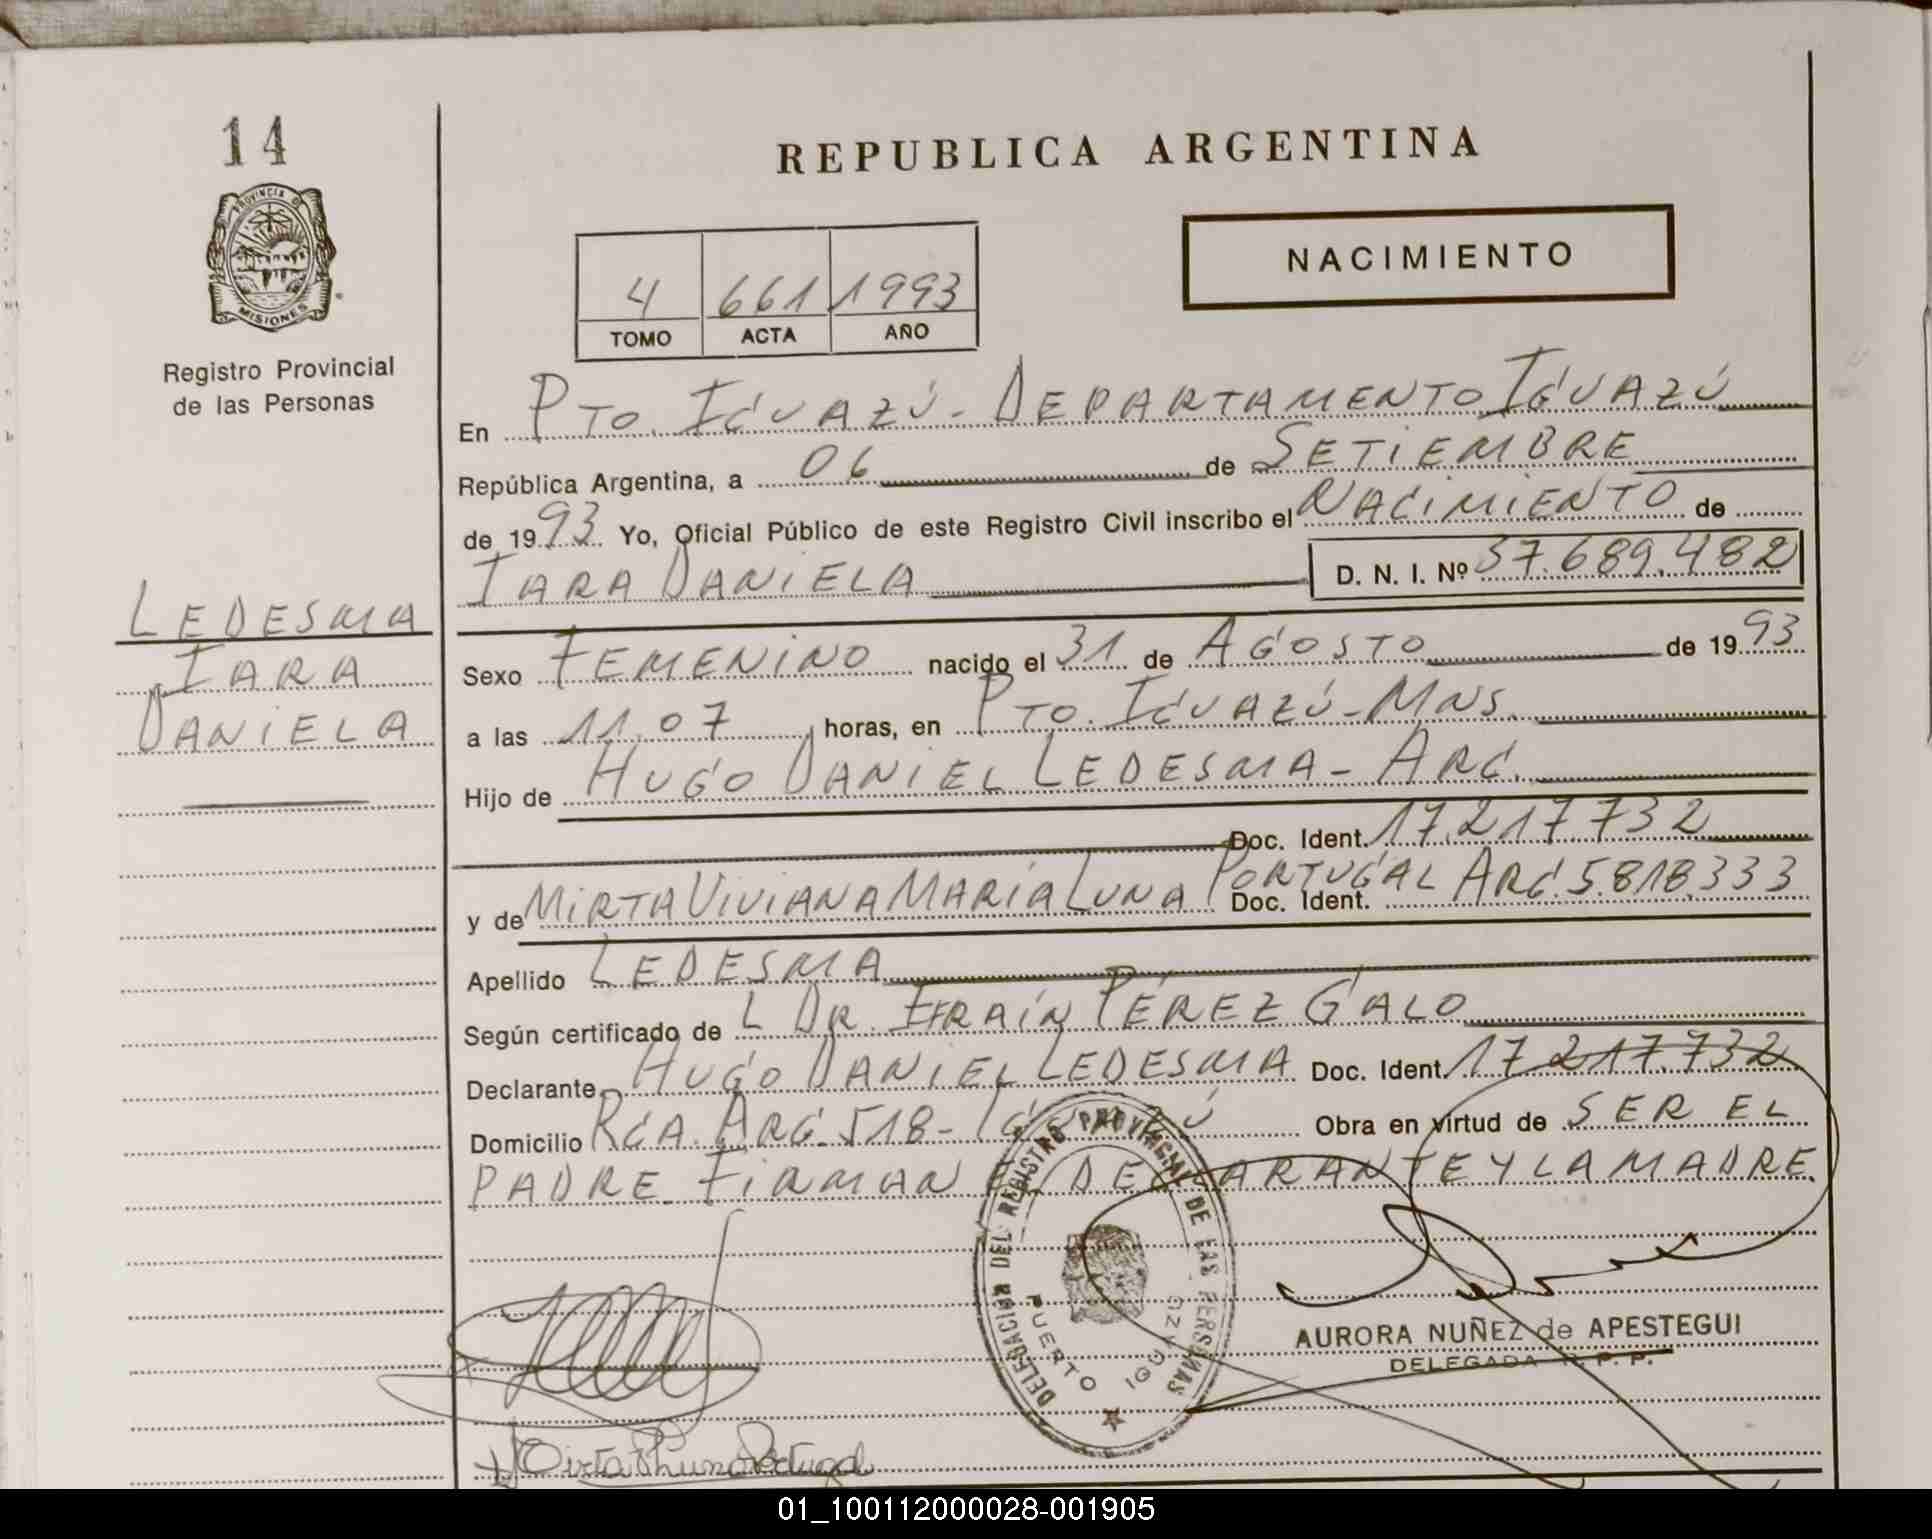 14
PROVINCIA DE
MISIONES
Registro Provincial
de las Personas
REPUBLICA ARGENTINA
NACIMIENTO
4 661 1993
TOMO ACTA AÑO
En PTO. IGUAZÚ - DEPARTAMENTO IGUAZÚ
República Argentina, a 06 de SETIEMBRE
de 1993 Yo, Oficial Público de este Registro Civil inscribo el NACIMIENTO de
IARA DANIELA D. N. I. Nº 37.689.482
LEDESMA
IARA
DANIELA
Sexo FEMENINO nacido el 31 de AGOSTO de 1993
a las 11.07 horas, en PTO. IGUAZÚ - MNS.
Hijo de HUGO DANIEL LEDESMA - ARG.
Doc. Ident. 17.217.732
y de MIRTA VIVIANA MARÍA LUNA PORTUGAL ARG. 5.818.333
Doc. Ident.
Apellido LEDESMA
Según certificado de L DR. EFRAÍN PÉREZ GALO
Declarante HUGO DANIEL LEDESMA Doc. Ident. 17.217.732
Domicilio RCA. ARG. 518 - IGUAZÚ Obra en virtud de SER EL
PADRE FIRMAN EL DECLARANTE Y LA MADRE.
DELEGACION DEL REGISTRO PROVINCIAL DE LAS PERSONAS
PUERTO IGUAZU
AURORA NUÑEZ de APESTEGUI
DELEGADA R. P. P.
01_100112000028-001905